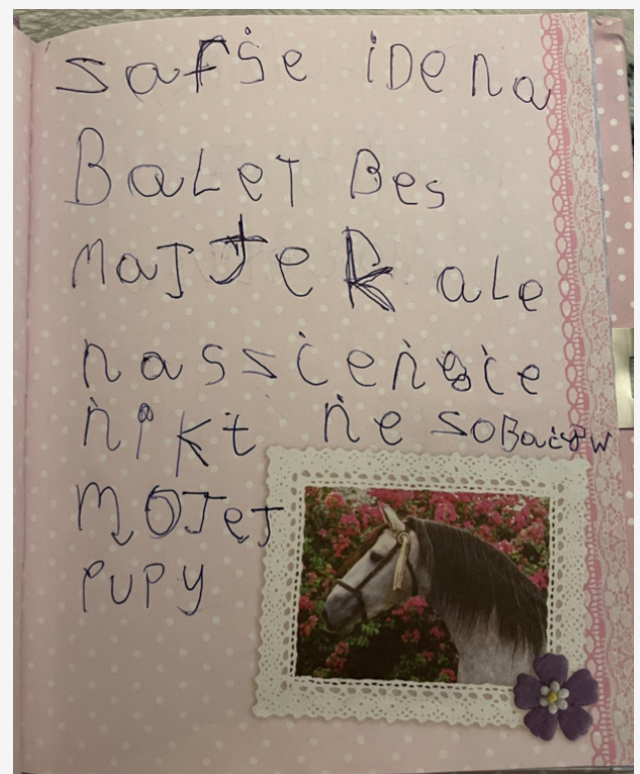 safśe iDe na
BaLeT Bes
majteK ale
nasscenście
ńikt ńe soBaćyw
mojej
pupy